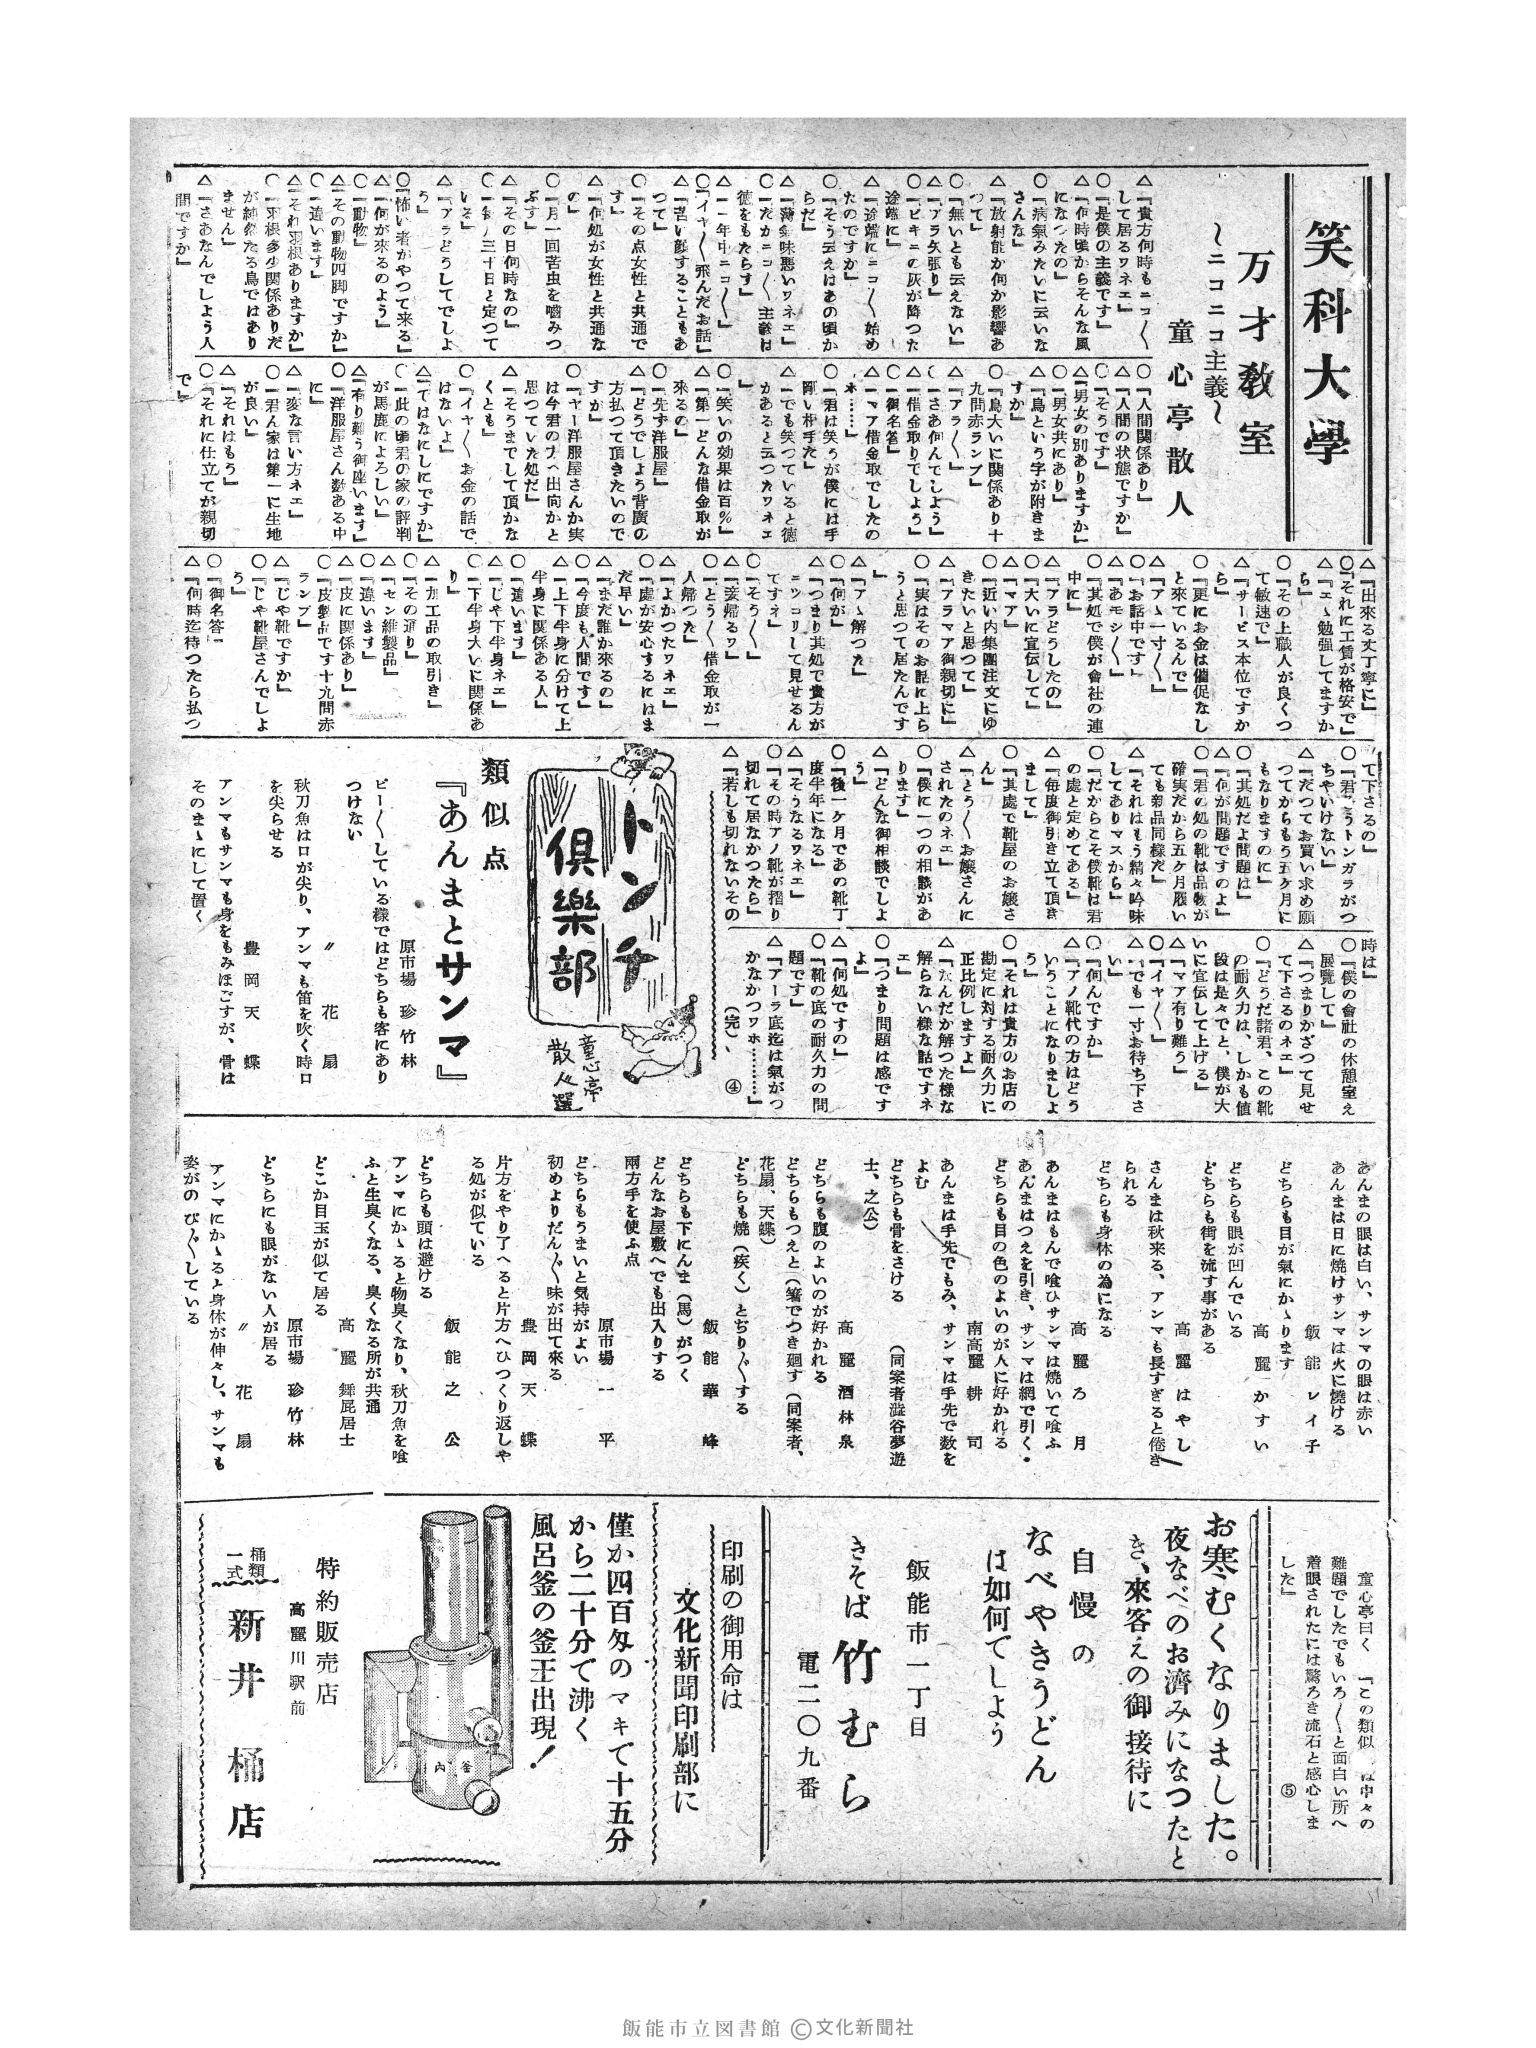 笑科大學
万才教室
～ニコニコ主義～
童心亭散人
△『貴方何時もニコ〱
して居るワネエ』
○『是僕の主義です』
△『何時頃からそんな風
になつたの』
○『病氣みたいに云いな
さんな』
△『放射能か何か影響あ
つて』
○『無いとも云えない』
△『アラ矢張り』
○『ビキニの灰が降つた
途端に』
△『途端にニコ〱始め
たのですか』
○『そう云えはあの頃か
らだ』
△『薄氣味悪いワネエ』
○『だがニコ〱主義は
徳をもたらす』
△『一年中ニコ〱』
○『イヤ〱飛んだお話』
△『苦い顔することもあ
つて』
○『その点女性と共通で
す』
△『何処が女性と共通な
の』
○『月一回苦虫を噛みつ
ぶす』
△『その日何時なの』
○『毎月三十日と定つて
いる』
△『アラどうしてでしよ
う』
○『怖い者がやつて来る』
△『何が來るのよう』
○『動物』
△『その動物四脚ですか』
○『違います』
△『それ羽根ありますか』
○『羽根多少関係ありだ
が純然たる鳥ではあり
ません』
△『さあなんでしよう人
間ですか』
○『人間関係あり』
△『人間の状態ですか』
○『そうです』
△『男女の別ありますか』
○『男女共にあり』
△『鳥という字が附きま
すか』
○『鳥大いに関係あり十
九問赤ランプ』
△『アラ〱』
○『さあ何んでしよう』
△『借金取りでしよう』
○『御名答』
△『マア借金取でしたの
ホ……』
○『君は笑うが僕には手
剛い相手だ』
△『でも笑つていると徳
があると云つたワネエ
』
○『笑いの効果は百％』
△『第一どんな借金取が
來るの』
○『先ず洋服屋』
△『どうでしよう背廣の
方払つて頂きたいので
すが』
○『ヤー洋服屋さんか実
は今君の方へ出向かと
思つていた処だ』
△『そうまでして頂かな
くとも』
○『イヤ〱お金の話で
はないよ』
△『ではなにしにですか』
○『此の頃君の家の評判
が馬鹿によろしい』
△『有り難う御座います』
○『洋服屋さん数ある中
に』
△『変な言い方ネエ』
○『君ん家は第一に生地
が良い』
△『それはもう』
○『それに仕立てが親切
で』
△『出來る丈丁寧に』
○『それに工賃が格安で』
△『エヽ勉強してますか
ら』
○『その上職人が良くつ
て敏速で』
△『サービス本位ですか
ら』
○『更にお金は催促なし
と來ているんで』
△『アヽ一寸〱』
○『お話中です』
△『あモシ〱』
○『其処で僕が會社の連
中に』
△『アラどうしたの』
○『大いに宣伝して』
△『マア』
○『近い内集團注文にゆ
きたいと思つて』
△『アラマア御親切に』
○『実はそのお話に上ら
うと思つて居たんです
』
△『アヽ解つた』
○『何が』
△『つまり其処で貴方が
ニツコリして見せるん
ですネ』
○『そう〱』
△『妾帰るワ』
○『とう〱借金取が一
人帰つた』
△『よかつたワネエ』
○『處が安心するにはま
だ早い』
△『まだ誰か來るの』
○『今度も人間です』
△『上下半身に分けて上
半身に関係ある人』
○『違います』
△『じや下半身ネエ』
○『下半身大いに関係あ
り』
△『加工品の取引き』
○『その通り』
△『セン維製品』
○『違います』
△『皮に関係あり』
○『皮製品です十九問赤
ランプ』
△『じや靴ですか』
○『じや靴屋さんでしよ
う』
○『御名答』
△『何時迄待つたら払つ
て下さるの』
○『君そうトンガラがつ
ちやいけない』
△『だつてお買い求め願
つてからもう五ケ月に
もなりますのに』
○『其処だよ問題は』
△『何が問題ですのよ』
○『君の処の靴は品物が
確実だから五ケ月履い
ても新品同様だ』
△『それはもう精々吟味
してありマスから』
○『だからこそ僕靴は君
の處と定めてある』
△『毎度御引き立て頂き
まして』
○『其處で靴屋のお嬢さ
ん』
△『とう〱お嬢さんに
されたのネエ』
○『僕に一つの相談があ
ります』
△『どんな御相談でしよ
う』
○『後一ケ月であの靴丁
度半年になる』
△『そうなるワネエ』
○『その時アノ靴が摺り
切れて居なかつたら』
△『若しも切れないその
時は』
○『僕の會社の休憩室え
展覽して』
△『つまりかざつて見せ
て下さるのネエ』
○『どうだ諸君、この靴
の耐久力は、しかも値
段は是々でと、僕が大
いに宣伝して上げる』
△『マア有り難う』
○『イヤ〱』
△『でも一寸お待ち下さ
い』
○『何んですか』
△『アノ靴代の方はどう
いうことになりましよ
う』
○『それは貴方のお店の
勘定に対する耐久力に
正比例しますよ』
△『なんだか解つた様な
解らない様な話ですネ
エ』
○『つまり問題は感です
よ』
△『何処ですの』
○『靴の底の耐久力の問
題です』
△『アーラ底迄は氣がつ
かなかつワホ………』
（完）④
トンチ
倶樂部
童心亭
散人選
類似点
『あんまとサンマ』
原市場　珍竹林
ピー〱している様ではどちらも客にあり
つけない
〃　花扇
秋刀魚は口が尖り、アンマも笛を吹く時口
を尖らせる
豊岡　天蝶
アンマもサンマも身をもみほごすが、骨は
そのまゝにして置く
あんまの眼は白い、サンマの眼は赤い
あんまは日に焼けサンマは火に焼ける
飯能　レイ子
どちらも目が氣にかゝります
高麗　かすい
どちらも眼が凹んでいる
どちらも街を流す事がある
高麗　はやし
さんまは秋来る、アンマも長すぎると倦き
られる
どちらも身体の為になる
高麗　ろ月
あんまはもんで喰ひサンマは焼いて喰ふ
あんまはつえを引き、サンマは網で引く・
どちらも目の色のよいのが人に好かれる
南高麗　耕司
あんまは手先でもみ、サンマは手先で数を
よむ
どちらも骨をさける　（同案者澁谷夢遊
士、之公）
高麗　酒林泉
どちらも腹のよいのが好かれる
どちらもつえと（箸でつき廻す（同案者、
花扇、天蝶）
どちらも焼（疾く）とぢり〲する
飯能　華峰
どちらも下にんま（馬）がつく
どんなお屋敷へでも出入りする
兩方手を使ふ点
原市場　一平
どちらもうまいと気持がよい
初めよりだん〲味が出て來る
豊岡　天蝶
片方をやり了へると片方へひつくり返しや
る処が似ている
飯能　之公
どちらも頭は避ける
アンマにかゝると物臭くなり、秋刀魚を喰
ふと生臭くなる、臭くなる所が共通
高麗　舞屁居士
どこか目玉が似て居る
原市場　珍竹林
どちらにも眼がない人が居る
〃　花扇
アンマにかゝると身体が伸々し、サンマも
姿がのび〲している
童心亭曰く　『この類似　は中々の
難題でしたでもいろ〱と面白い所へ
着眼されたには驚ろき流石と感心しま
した』⑤
お寒むくなりました。
夜なべのお濟みになつたと
き、來客えの御接待に
自慢の
なべやきうどん
は如何でしよう
飯能市一丁目
きそば　竹むら
電二〇九番
印刷の御用命は
文化新聞印刷部に
僅か四百匁のマキで十五分
から二十分で沸く
風呂釜の釜王出現！
内釜
特約販売店
高麗川駅前
桶類一式
新井桶店
飯能市立図書館 ©文化新聞社